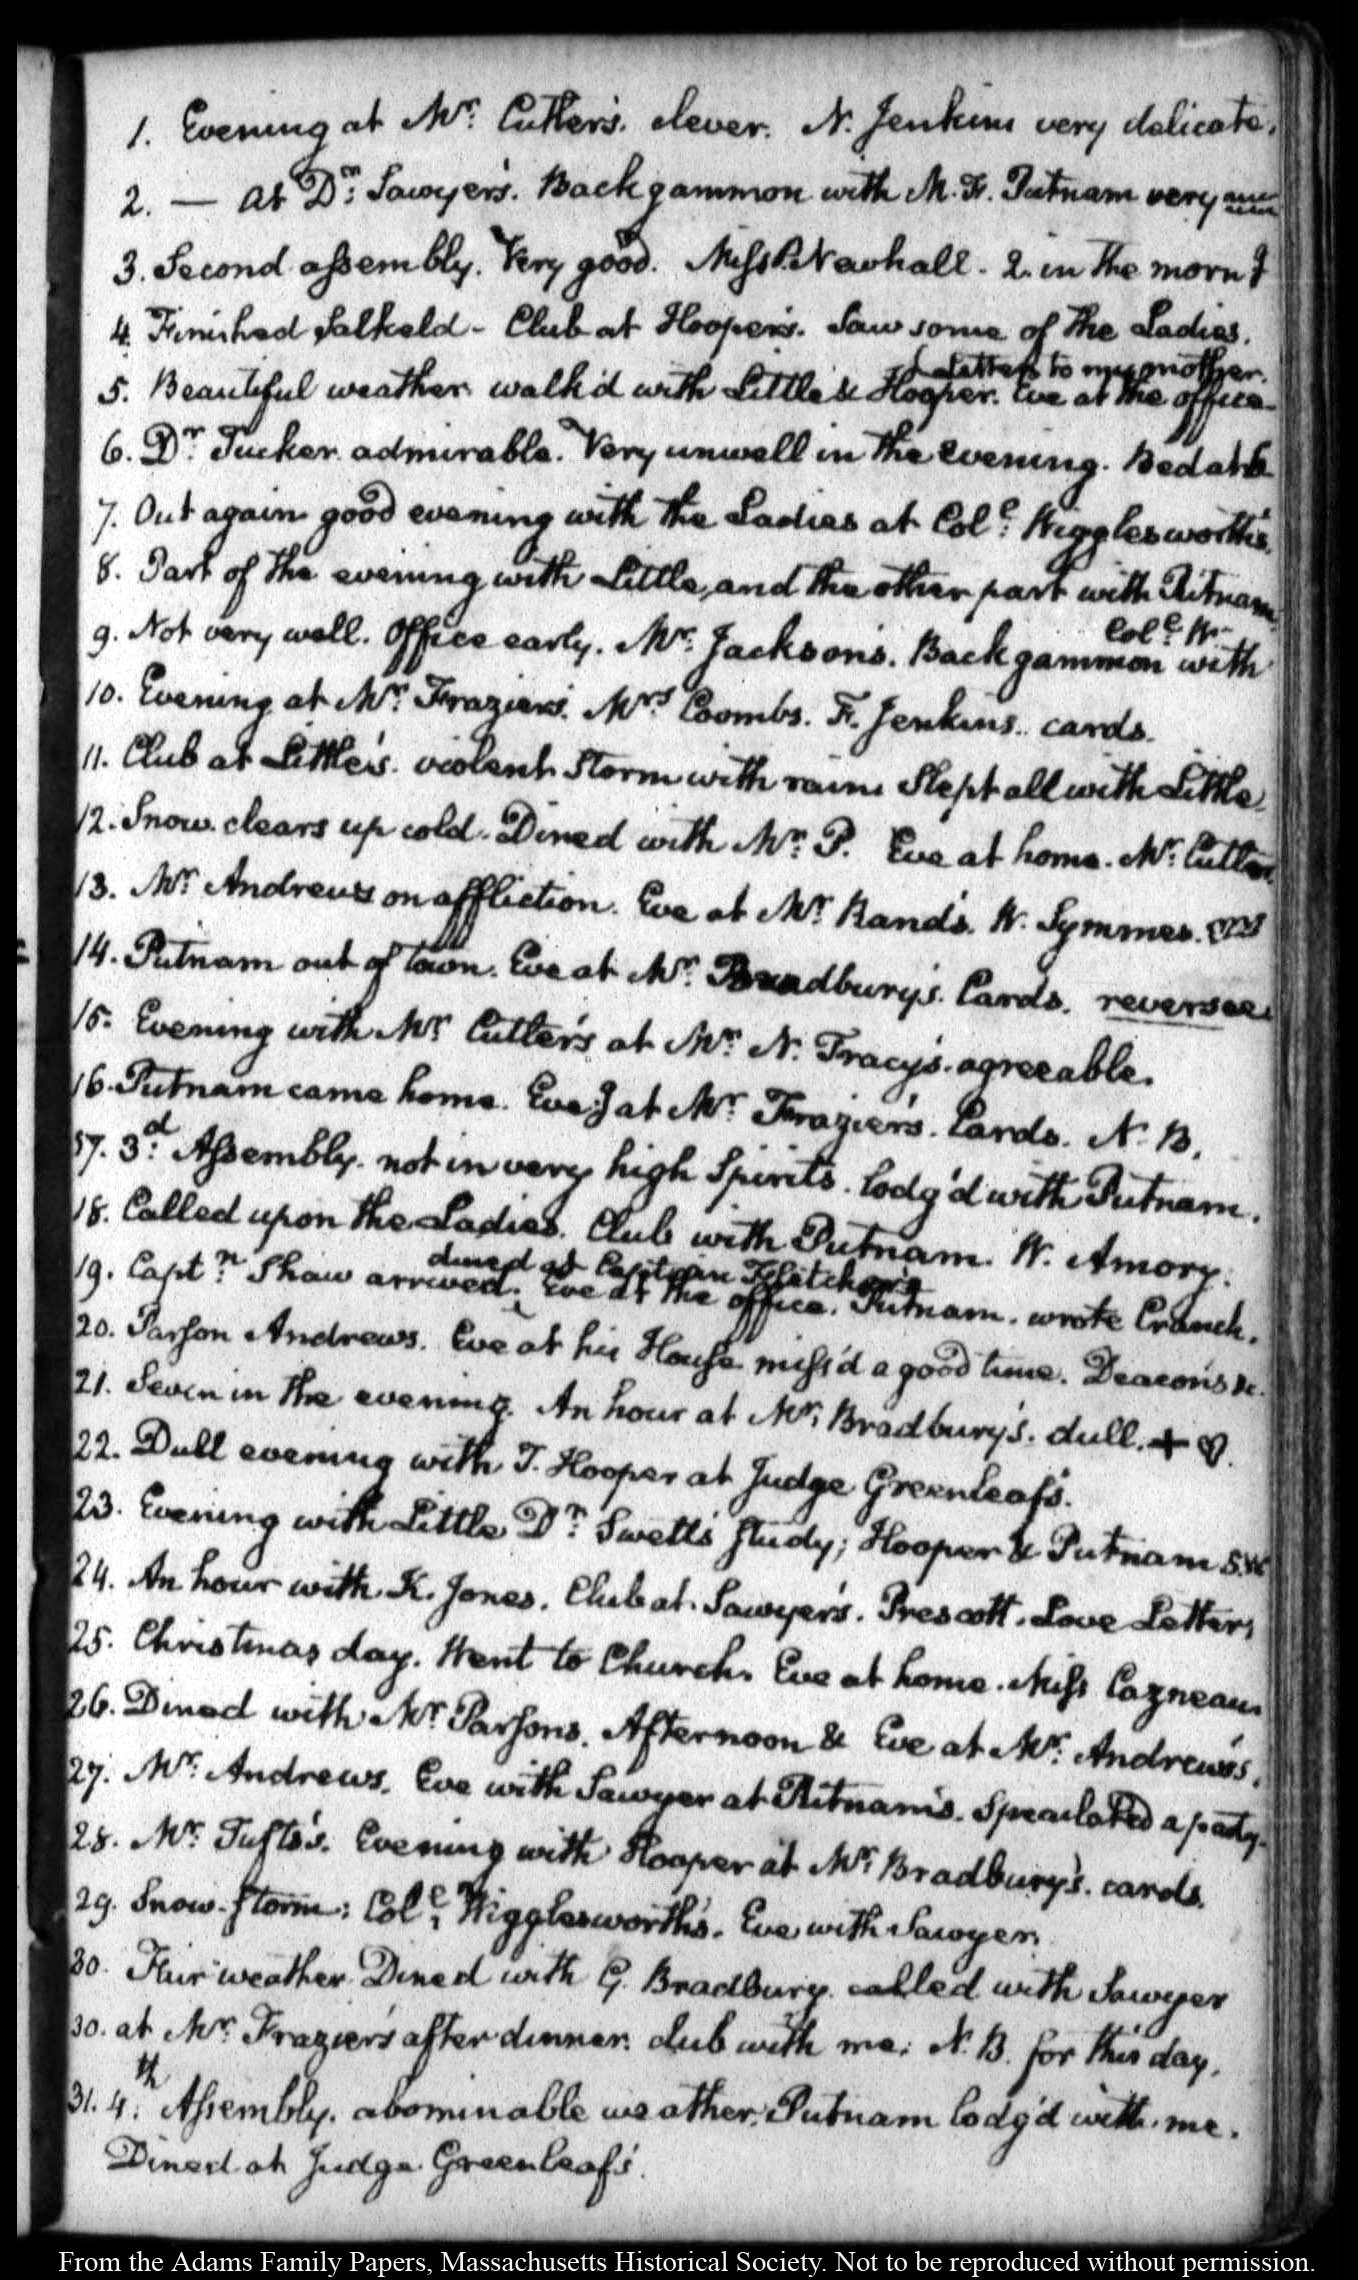 1. Evening at Mr. Cutler's. clever. N. Jenkins very delicate.
2. — at Dr. Sawyer's. Back gammon with M. F. Putnam very
3. Second assembly. Very good. Miss P. Newhall. 2. in the morng
4. Finished Salkeld - Club at Hooper's. Saw some of the Ladies.
Letters to my mother.
5. Beautiful weather. walk'd with Little & Hooper. Eve at the office.
6. Dr. Tucker admirable. Very unwell in the evening. Bed at
7. Out again good evening with the Ladies at Coll. Wigglesworth's.
8. Part of the evening with Little, and the other part with Putnam
Coll. W-
9. Not very well. Office early. Mr. Jackson's. Back gammon with
10. Evening at Mr. Frazier's. Mrs. Coombs. F. Jenkins. cards.
11. Club at Little's. violent Storm with rain. Slept all with Little.
12. Snow. clears up cold. Dined with Mr. P. Eve at home. Mr. Cutler.
13. Mr. Andrews on affliction. Eve at Mr. Rand's. W. Symmes.
14. Putnam out of town. Eve at Mr. Bradbury's. Cards. reverses
15. Evening with Mr. Cutler's at Mr. N. Tracy's. agreeable.
16. Putnam came home. Eveg at Mr. Frazier's. Cards. N. B.
17. 3d. Assembly. not in very high Spirits. lodg'd with Putnam.
18. Called upon the Ladies. Club with Putnam. W. Amory.
dined at Captain Fletcher's
19. Captn. Shaw arrived. Eve at the office. Putnam. wrote Cranch.
20. Parson Andrews. Eve at his House miss'd a good time. Deacon's &c.
21. Seven in the evening. An hour at Mr. Bradbury's. dull. + ♡.
22. Dull evening with T. Hooper at Judge Greenleaf's.
23. Evening with Little Dr. Swett's study; Hooper & Putnam
24. An hour with K. Jones. Club at Sawyer's. Prescott. Love Letters
25. Christmas day. Went to Church. Eve at home. Miss Cazneau
26. Dined with Mr. Parsons. Afternoon & Eve at Mr. Andrews's.
27. Mr. Andrews. Eve with Sawyer at Putnam's. Speculated a party.
28. Mr. Tufts's. Evening with Hooper at Mr. Bradbury's. cards.
29. Snow-storm; Coll. Wigglesworth's. Eve with Sawyer.
30. Fair weather Dined with G. Bradbury. called with Sawyer
30. at Mr. Frazier's after dinner. club with me; N. B. for this day.
31. 4th. Assembly. abominable weather. Putnam lodg'd with me.
Dined at Judge Greenleaf's.
From the Adams Family Papers, Massachusetts Historical Society. Not to be reproduced without permission.